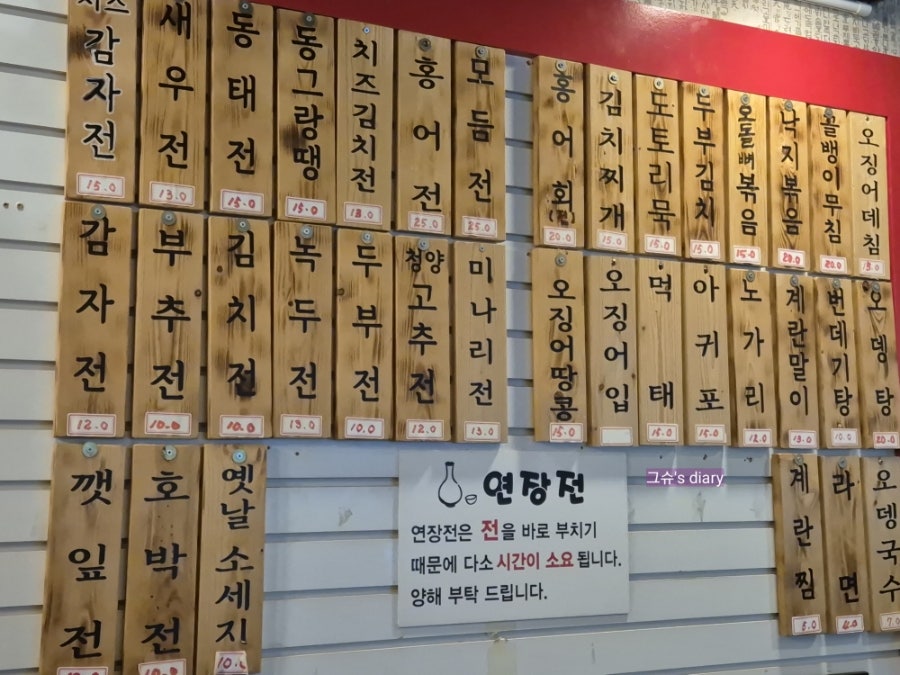 치즈감자전 15.0
새우전 13.0
동태전 15.0
동그랑땡 15.0
치즈김치전 13.0
홍어전 25.0
모듬전 25.0
홍어회 20.0
김치찌개 15.0
도토리묵 15.0
두부김치 15.0
오돌뼈볶음 15.0
낙지볶음 20.0
골뱅이무침 20.0
오징어데침 13.0
감자전 12.0
부추전 10.0
김치전 10.0
녹두전 13.0
두부전 10.0
청양고추전 12.0
미나리전 13.0
오징어땅콩 15.0
오징어입
먹태 15.0
아귀포 15.0
노가리 12.0
계란말이 13.0
번데기탕 10.0
오뎅탕 20.0
깻잎전
호박전
옛날소세지
계란찜 5.0
라면 4.0
오뎅국수 7.0
연장전
연장전은 전을 바로 부치기
때문에 다소 시간이 소요 됩니다.
양해 부탁 드립니다.
그슈's diary